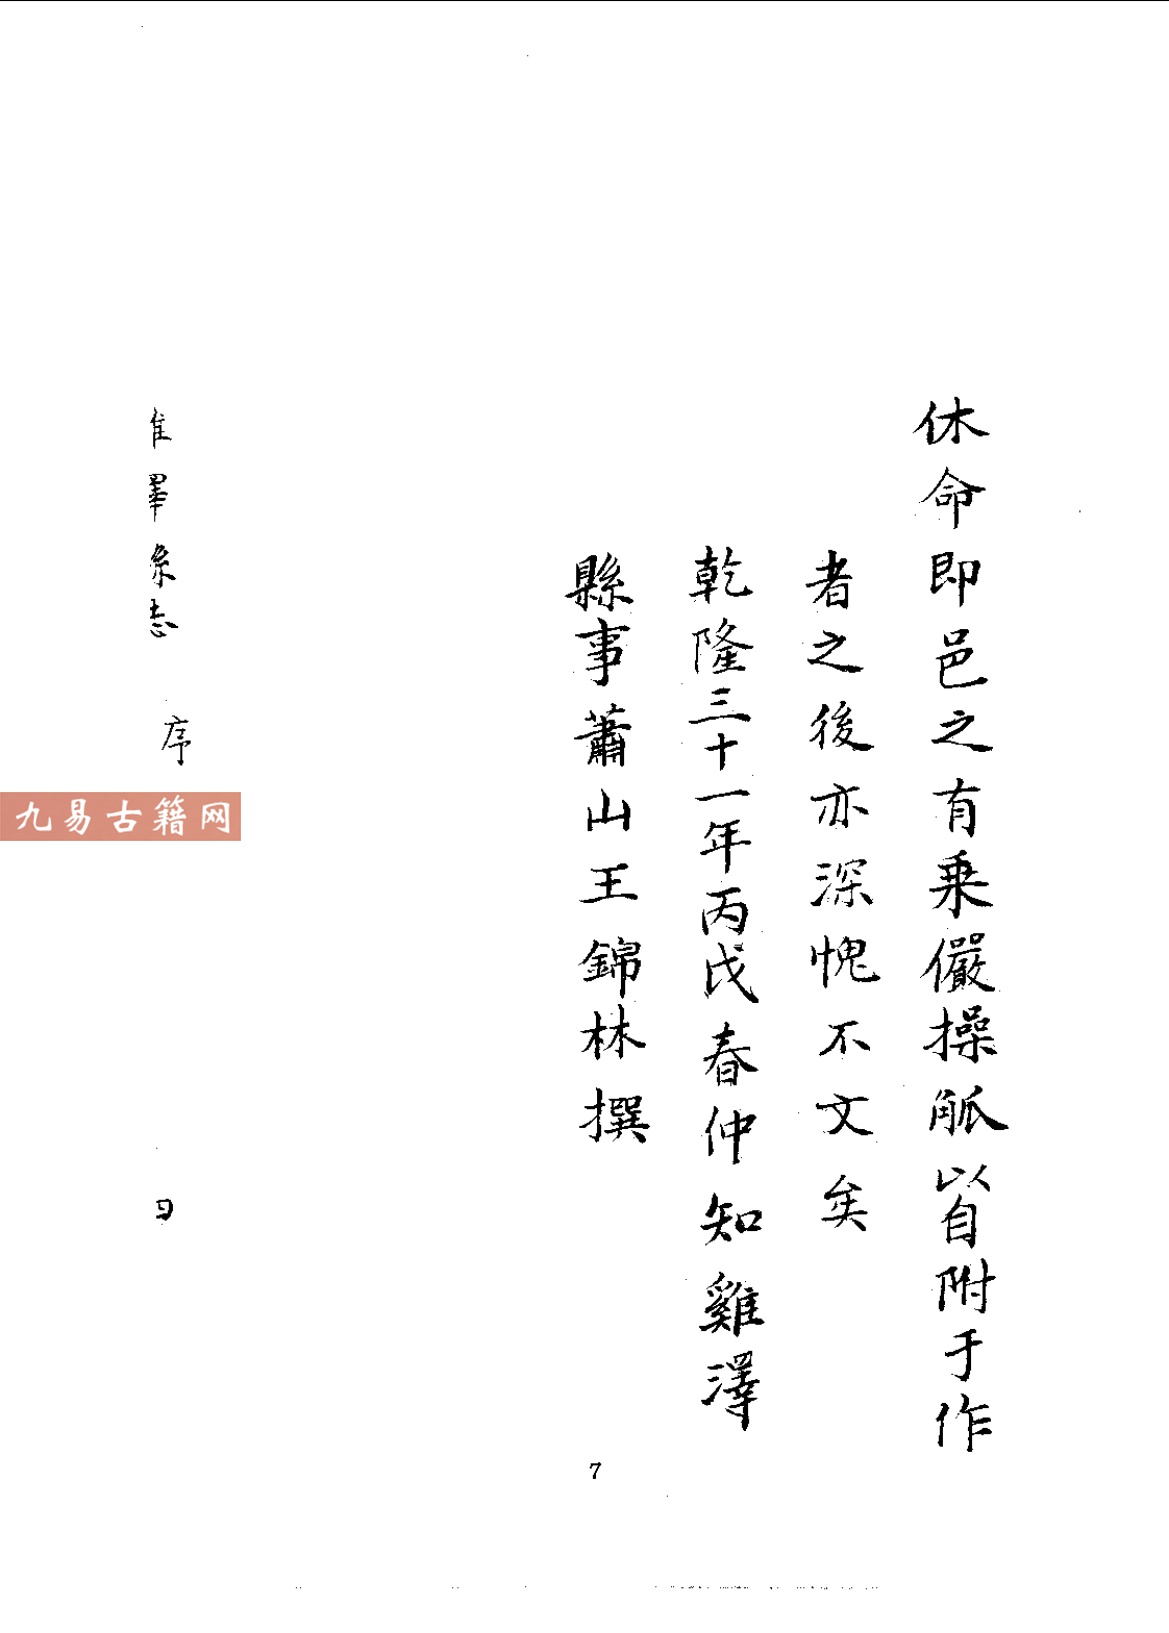 休命即邑之有乗儼操觚以自附于作
者之後亦深愧不文矣
乾隆三十一年丙戌春仲知雞澤
縣事蕭山王錦林撰
志 序
九易古籍网
7